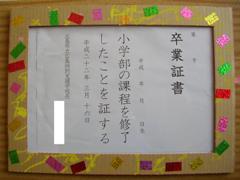 卒業証書
第　号
平成　年　月　日生
小学部の課程を修了
したことを証する
平成二十二年 三月 十六日